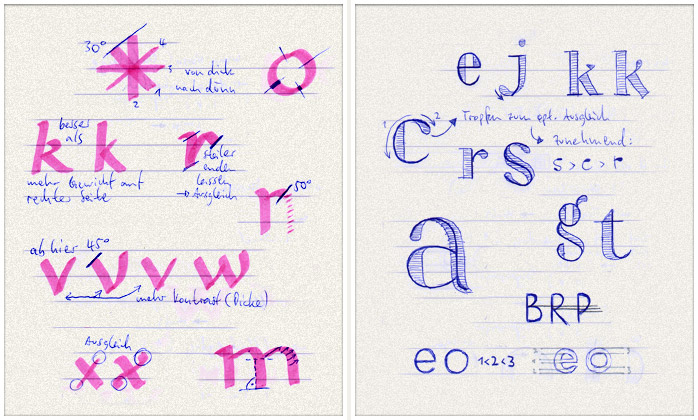 30°
4
3
1
2
von dick
nach dünn
o
besser
als
k k n
steiler
enden
lassen
→ Ausgleich
mehr Gewicht auf
rechter Seite
50°
n
ab hier 45°
v v v w
mehr Kontrast (Dicke)
Ausgleich
x x m
e j k k
Tropfen zum opt. Ausgleich
1 2
c r s
zunehmend:
s > c > r
a g t
BRP
e o 1<2<3 e o